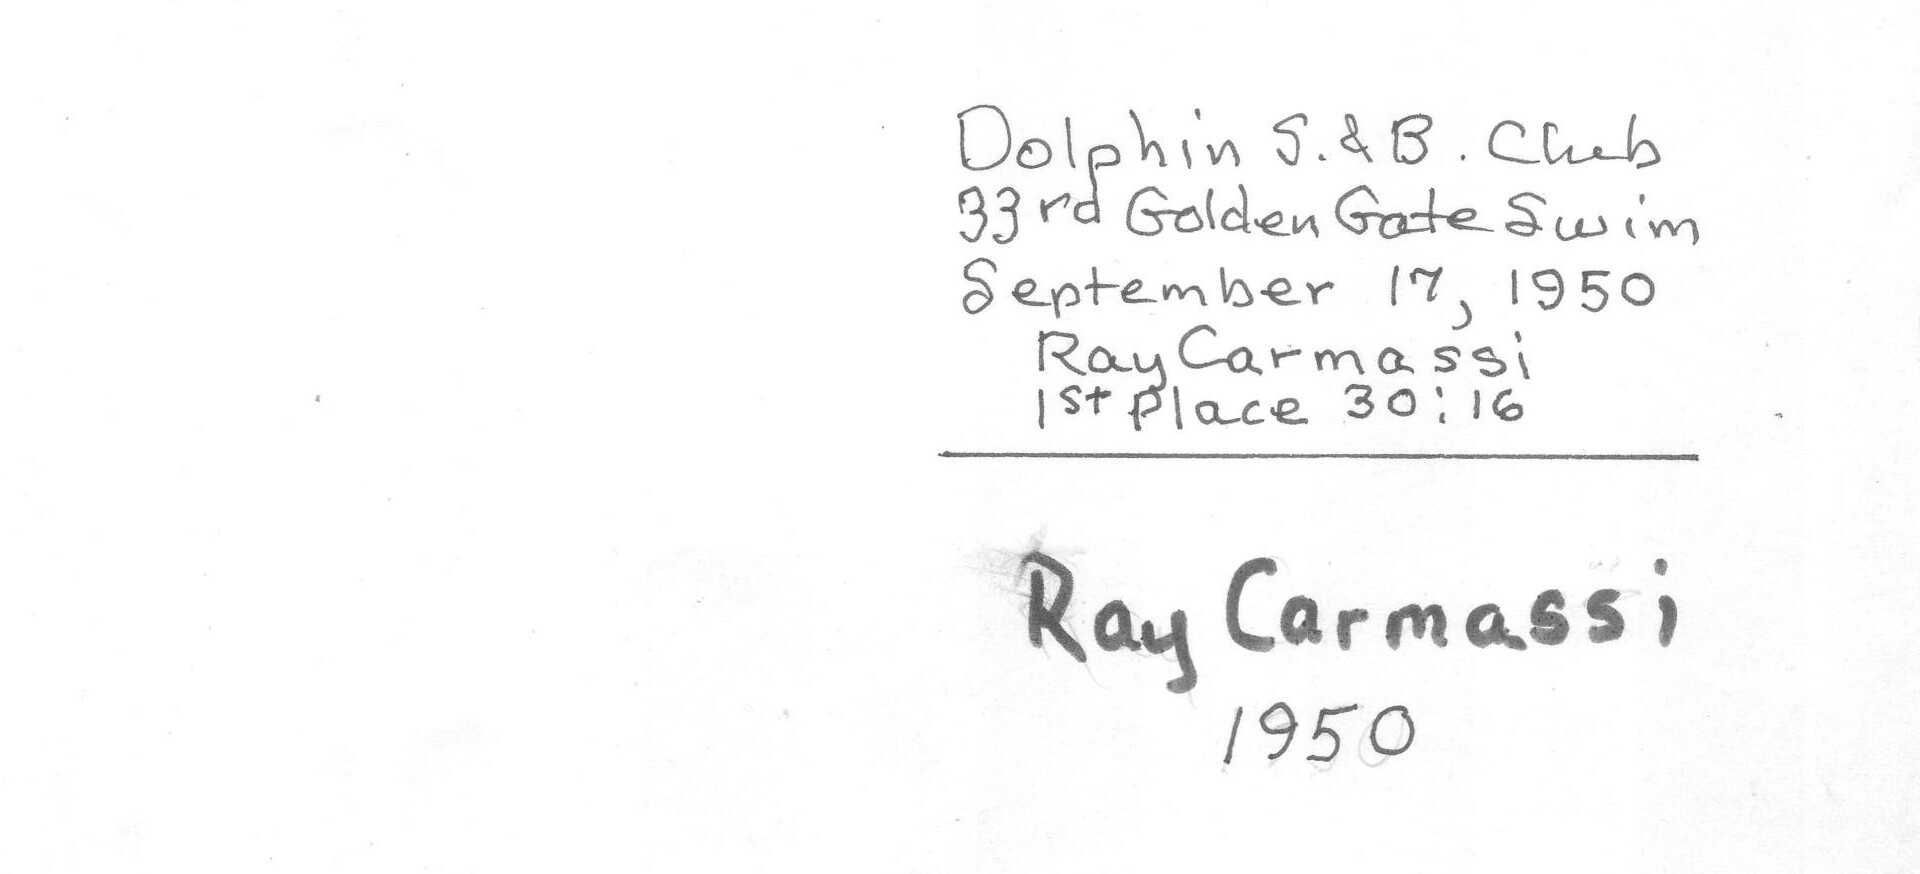 Dolphin S. & B. Club
33rd Golden Gate Swim
September 17, 1950
Ray Carmassi
1st Place 30:16
Ray Carmassi
1950